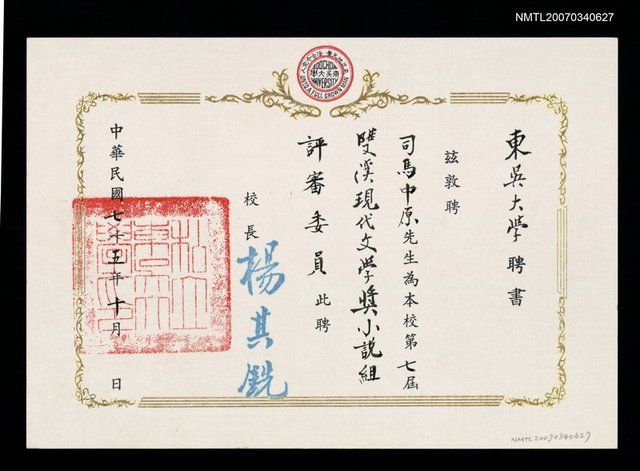 NMTL20070340627
SOOCHOW
UNIVERSITY
UNTO A FULL GROWN MAN
東吳大學聘書
玆敦聘
司馬中原先生為本校第七屆
雙溪現代文學獎小說組
評審委員 此聘
校長 楊其銑
中華民國七十五年十月 日
NMTL20070340627